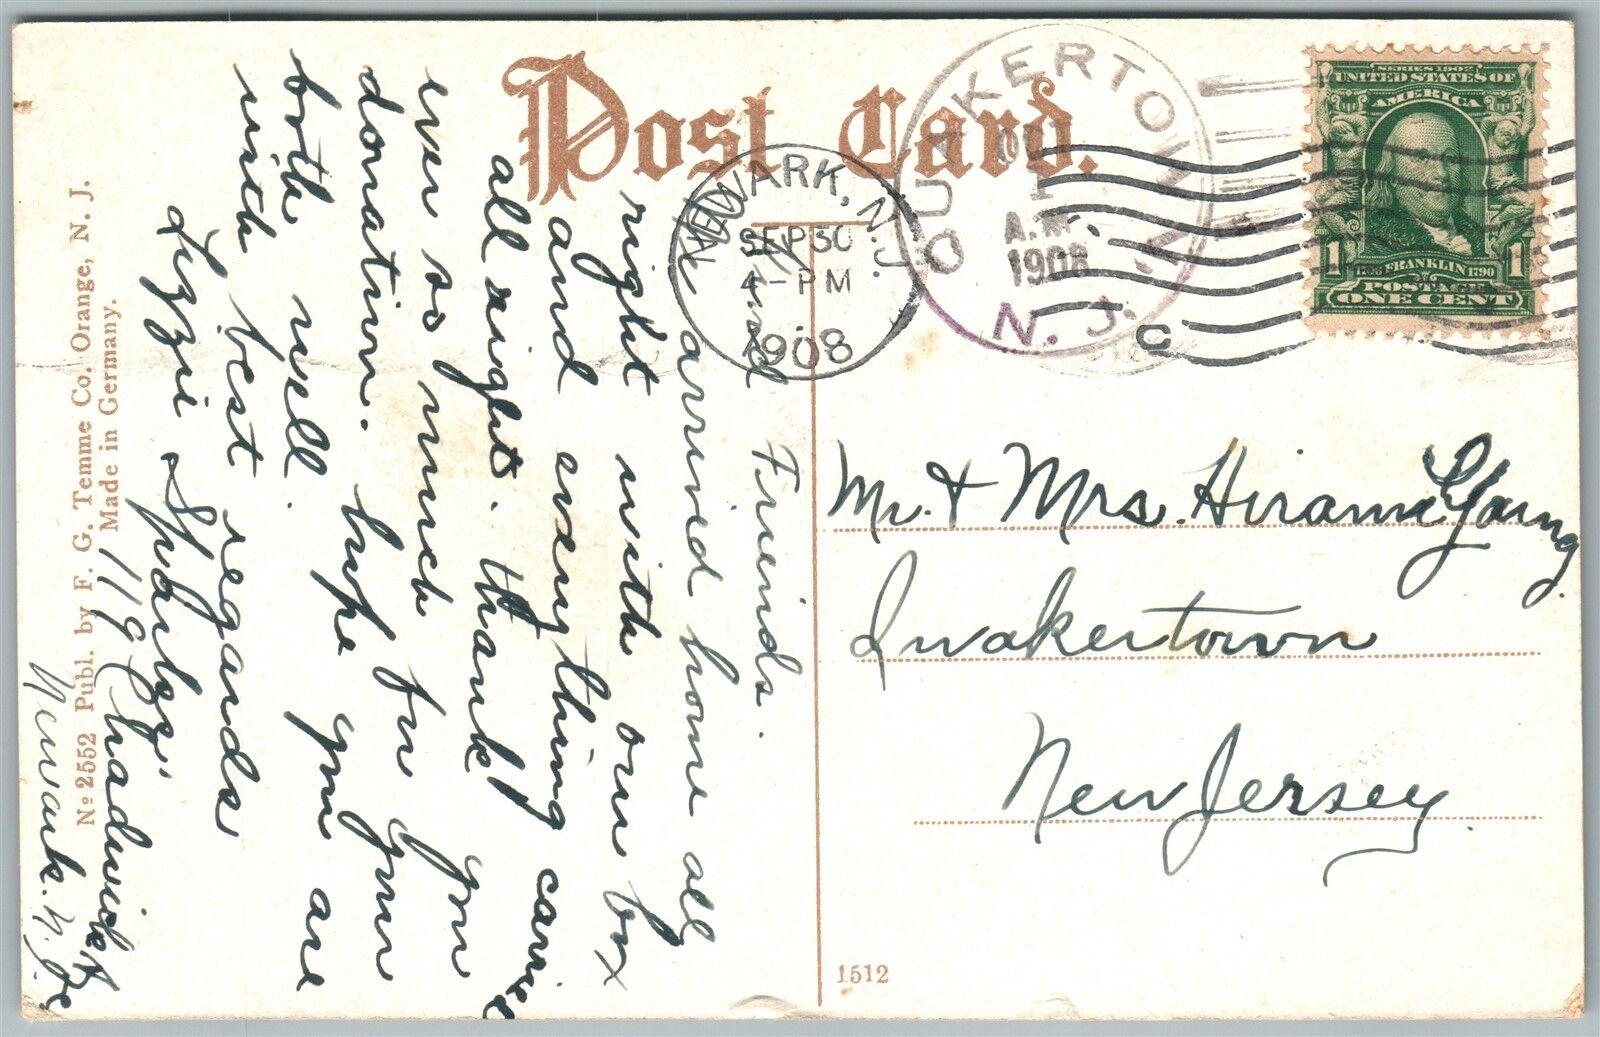 Post Card.
NEWARK, N.J.
SEP 30
4-PM
1908
QUAKERTOWN
OCT
1
A.M.
1908
N. J.
C
SERIES 1902
UNITED STATES OF
AMERICA
1706 FRANKLIN 1790
1 1
POSTAGE
ONE CENT
My Kind Friends.
We arrived home all
right with our box
and everything came
all right. thank
ever so much for your
donation. hope you are
both well.
with best regards
Lizzie
119 Chadwick Av
Newark. N. J.
Mr. & Mrs. Hiram Young
Quakertown
New Jersey.
No 2552 Publ. by F. G. Temme Co. Orange, N. J.
Made in Germany.
1512